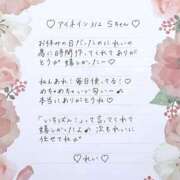 ♡ アイネイン 312 Sちゃん ♡
お休めの日だったのに れいの
為に時間作ってくれてありが
とうが 嬉しかった〜♡
れんあれ！毎日使ってる！♡
めちゃめちゃいい匂い〜♪
本当にありがとうね♡
『いちばん』って言ってくれて
嬉しかったよ♪ 次もれいに
任せてねが
♡ れい ♡